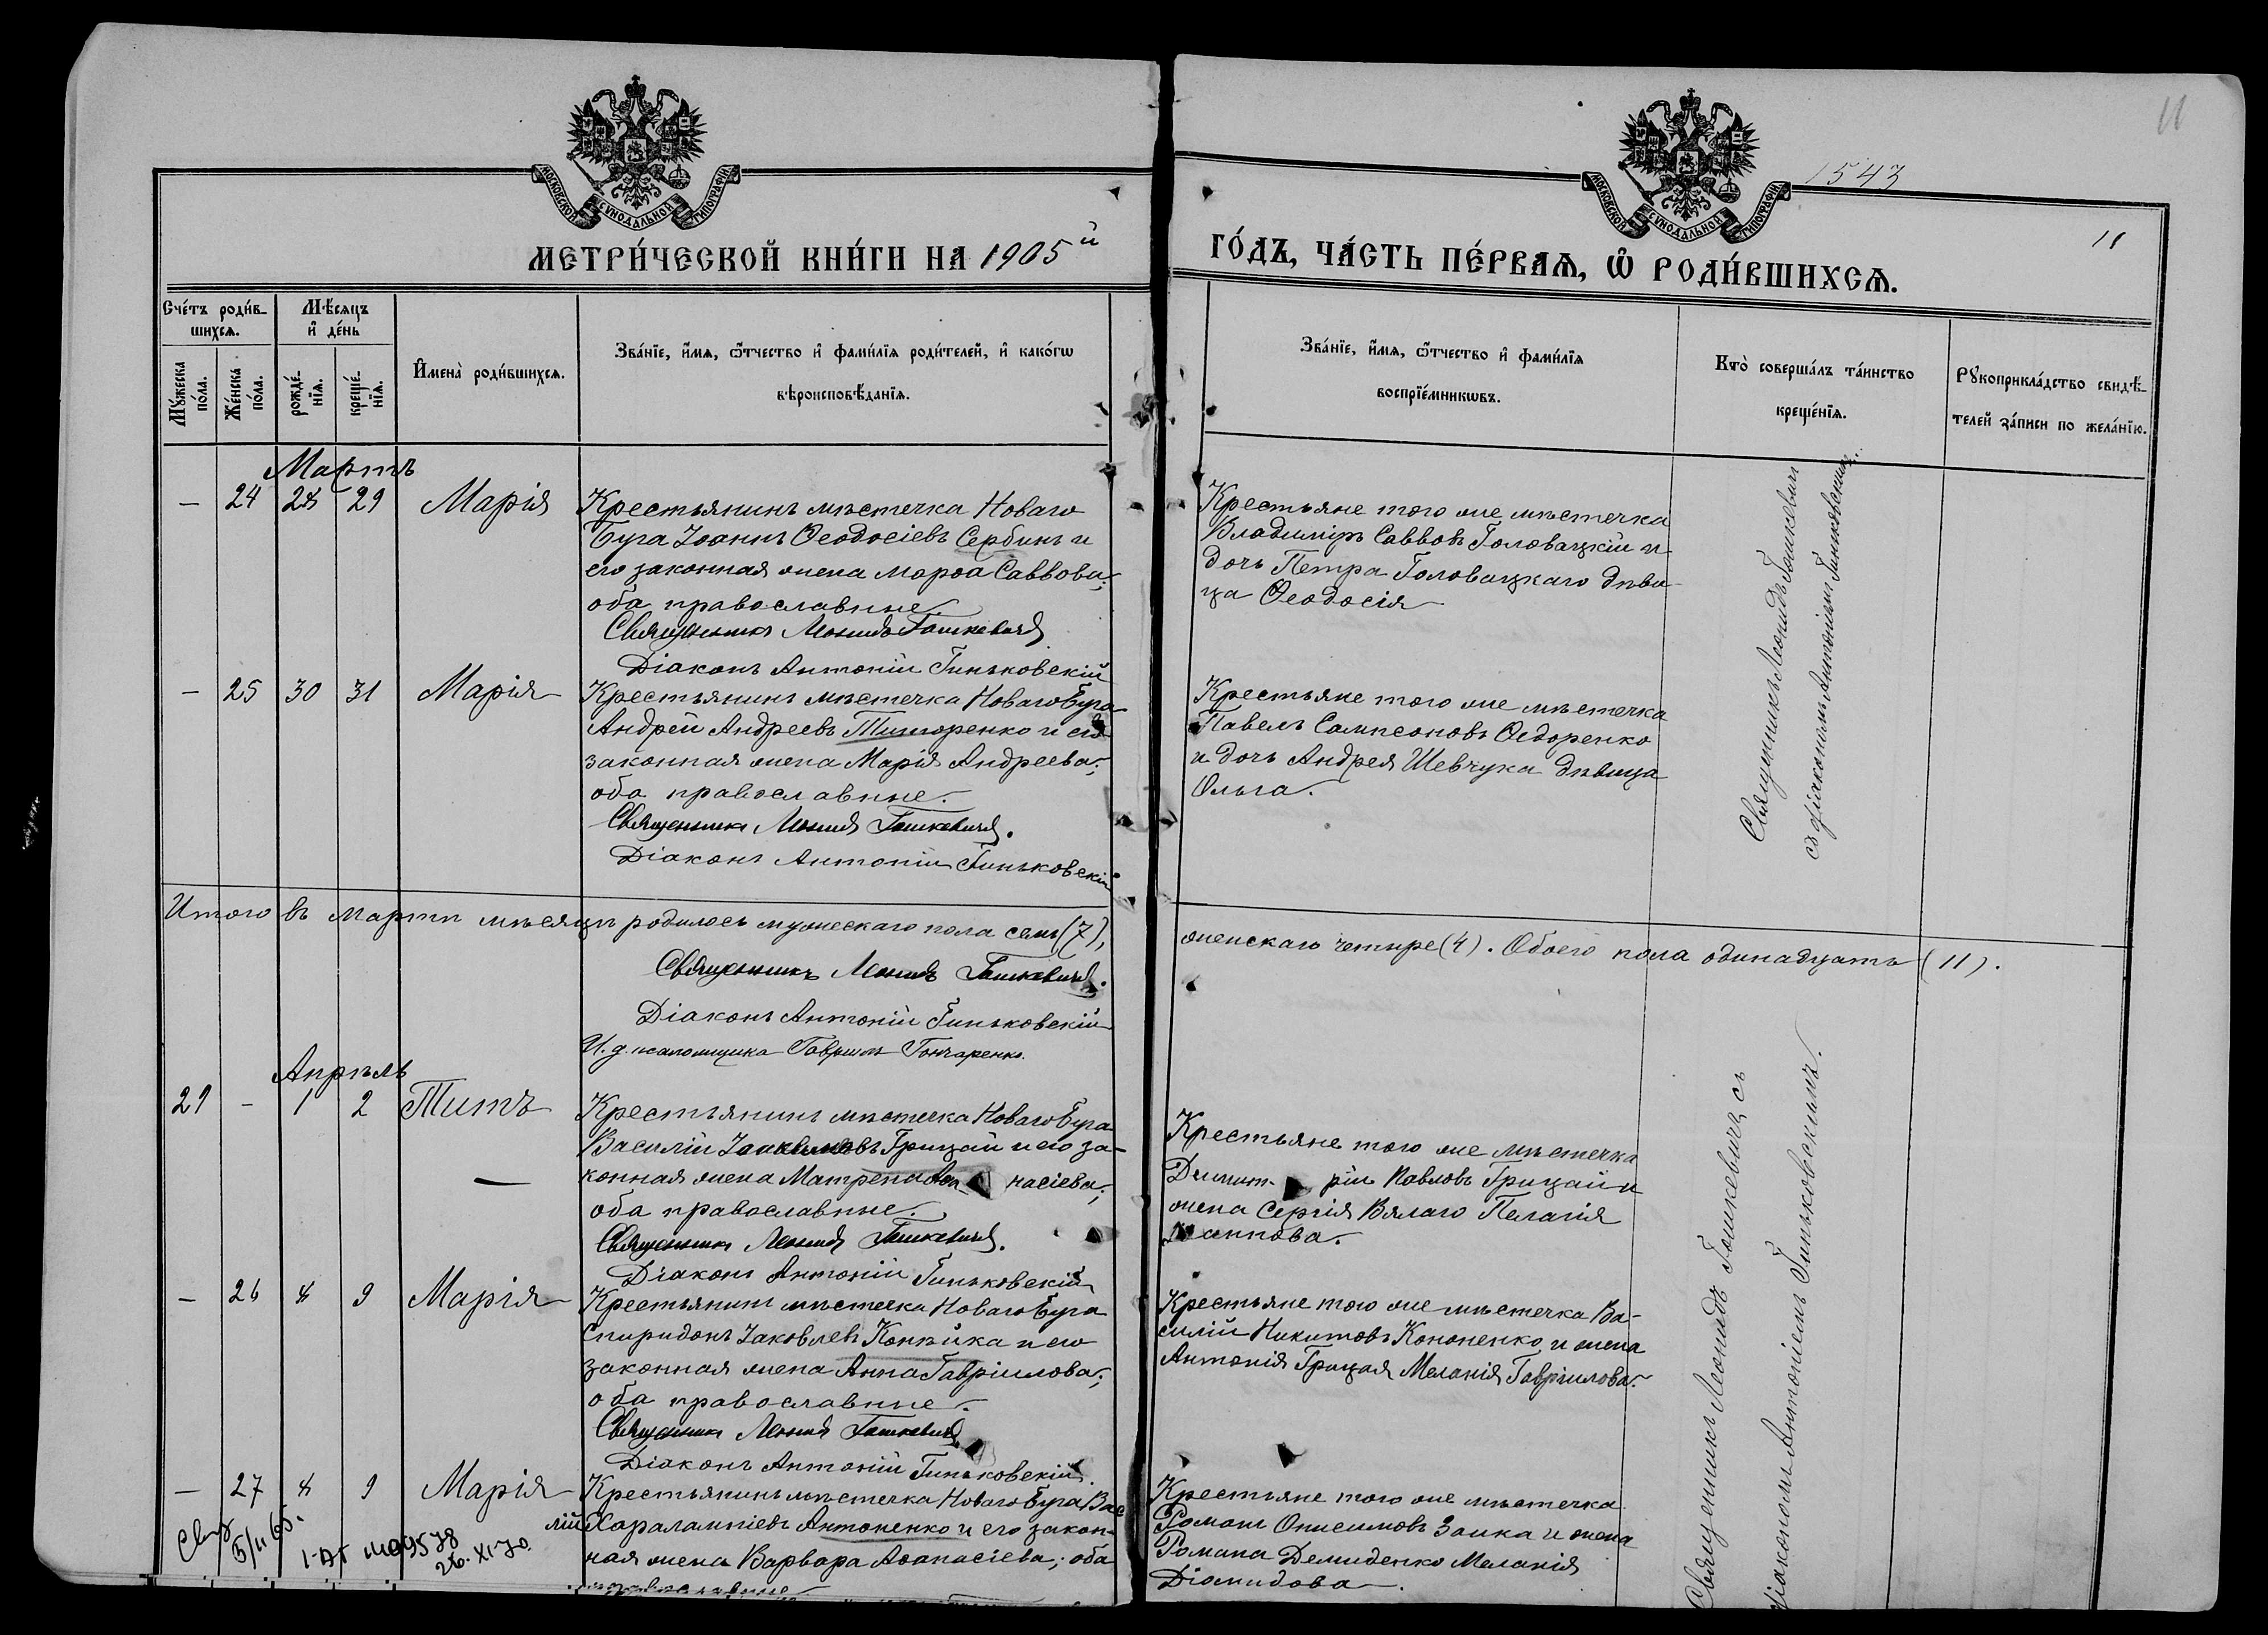 11
1543
11
МОСКОВСКОЙ СѴНОДАЛЬНОЙ ТИПОГРАФІИ
МОСКОВСКОЙ СѴНОДАЛЬНОЙ ТИПОГРАФІИ
МЕТРИ́ЧЕСКОЙ КНИ́ГИ НА 1905й
ГО́ДЪ, ЧА́СТЬ ПЕ́РВАѦ, Ѿ РОДИ́ВШИХСѦ.
Сче́тъ роди́в-
шихсѧ.
Мꙋ́жеска по́ла.
Же́нска по́ла.
Мѣ́сѧцъ
и҆ де́нь
рожде́-
нїѧ.
креще́-
нїѧ.
И҆мена̀ роди́вшихсѧ.
Зва́нїе, и҆́мѧ, ѻ҆́тчество и҆ фами́лїѧ роди́телей, и҆ како́гѡ
вѣроисповѣ́данїѧ.
Зва́нїе, и҆́мѧ, ѻ҆́тчество и҆ фами́лїѧ
воспрїе́мникѡвъ.
Кто̀ соверша́лъ та́инство
креще́нїѧ.
Рꙋкоприкла́дство свидѣ́-
телей за́писи по жела́нїю.
Мартъ
— 24 28 29 Марія
Крестьянинъ мѣстечка Новаго
Буга Іоаннъ Ѳеодосіевъ Сербинъ и
его законная жена Марѳа Саввова;
оба православные.
Священникъ Леонидъ Гошкевичъ
Діаконъ Антоній Гиньковскій
Крестьяне того же мѣстечка
Владиміръ Саввовъ Головацкій и
дочь Петра Головацкаго дѣви-
ца Ѳеодосія
Священникъ Леонидъ Гошкевичъ
съ діакономъ Антоніемъ Гиньковскимъ.
— 25 30 31 Марія
Крестьянинъ мѣстечка Новаго Буга
Андрей Андреевъ Титоренко и его
законная жена Марія Андреева;
оба православные.
Священникъ Леонидъ Гошкевичъ.
Діаконъ Антоній Гиньковскій
Крестьяне того же мѣстечка
Павелъ Сампсоновъ Ѳедоренко
и дочь Андрея Шевчука дѣвица
Ольга.
Итого въ Мартѣ мѣсяцѣ родилось мужескаго пола семь (7),
женскаго четыре (4). Обоего пола одинадцать (11).
Священникъ Леонидъ Гошкевичъ.
Діаконъ Антоній Гиньковскій
И. д. псаломщика Гавриилъ Гончаренко.
Апрѣль
29 — 1 2 Титъ
Крестьянинъ мѣстечка Новаго Буга
Василій Іоакимовъ Грицай и его за-
конная жена Матрена Аѳа насіева;
оба православные.
Священникъ Леонидъ Гошкевичъ.
Діаконъ Антоній Гиньковскій
Крестьяне того же мѣстечка
Димит- рій Павловъ Грицай и
жена Сергія Вялаго Пелагія
Іоаннова.
Священникъ Леонидъ Гошкевичъ съ
діакономъ Антоніемъ Гиньковскимъ.
— 26 8 9 Марія
Крестьянинъ мѣстечка Новаго Буга
Спиридонъ Іаковлевъ Копѣйка и его
законная жена Анна Гавріилова;
оба православные.
Священникъ Леонидъ Гошкевичъ
Діаконъ Антоній Гиньковскій
Крестьяне того же мѣстечка Ва-
силій Никитовъ Кононенко и жена
Антонія Грицая Меланія Гавріилова.
— 27 8 9 Марія
Крестьянинъ мѣстечка Новаго Буга Васи
лій Харалампіевъ Антоненко и его закон-
ная жена Варвара Аѳанасіева; оба
православные
Крестьяне того же мѣстечка
Романъ Онисимовъ Заика и жена
Романа Демиденко Меланія
Діомидова.
26.XI-70